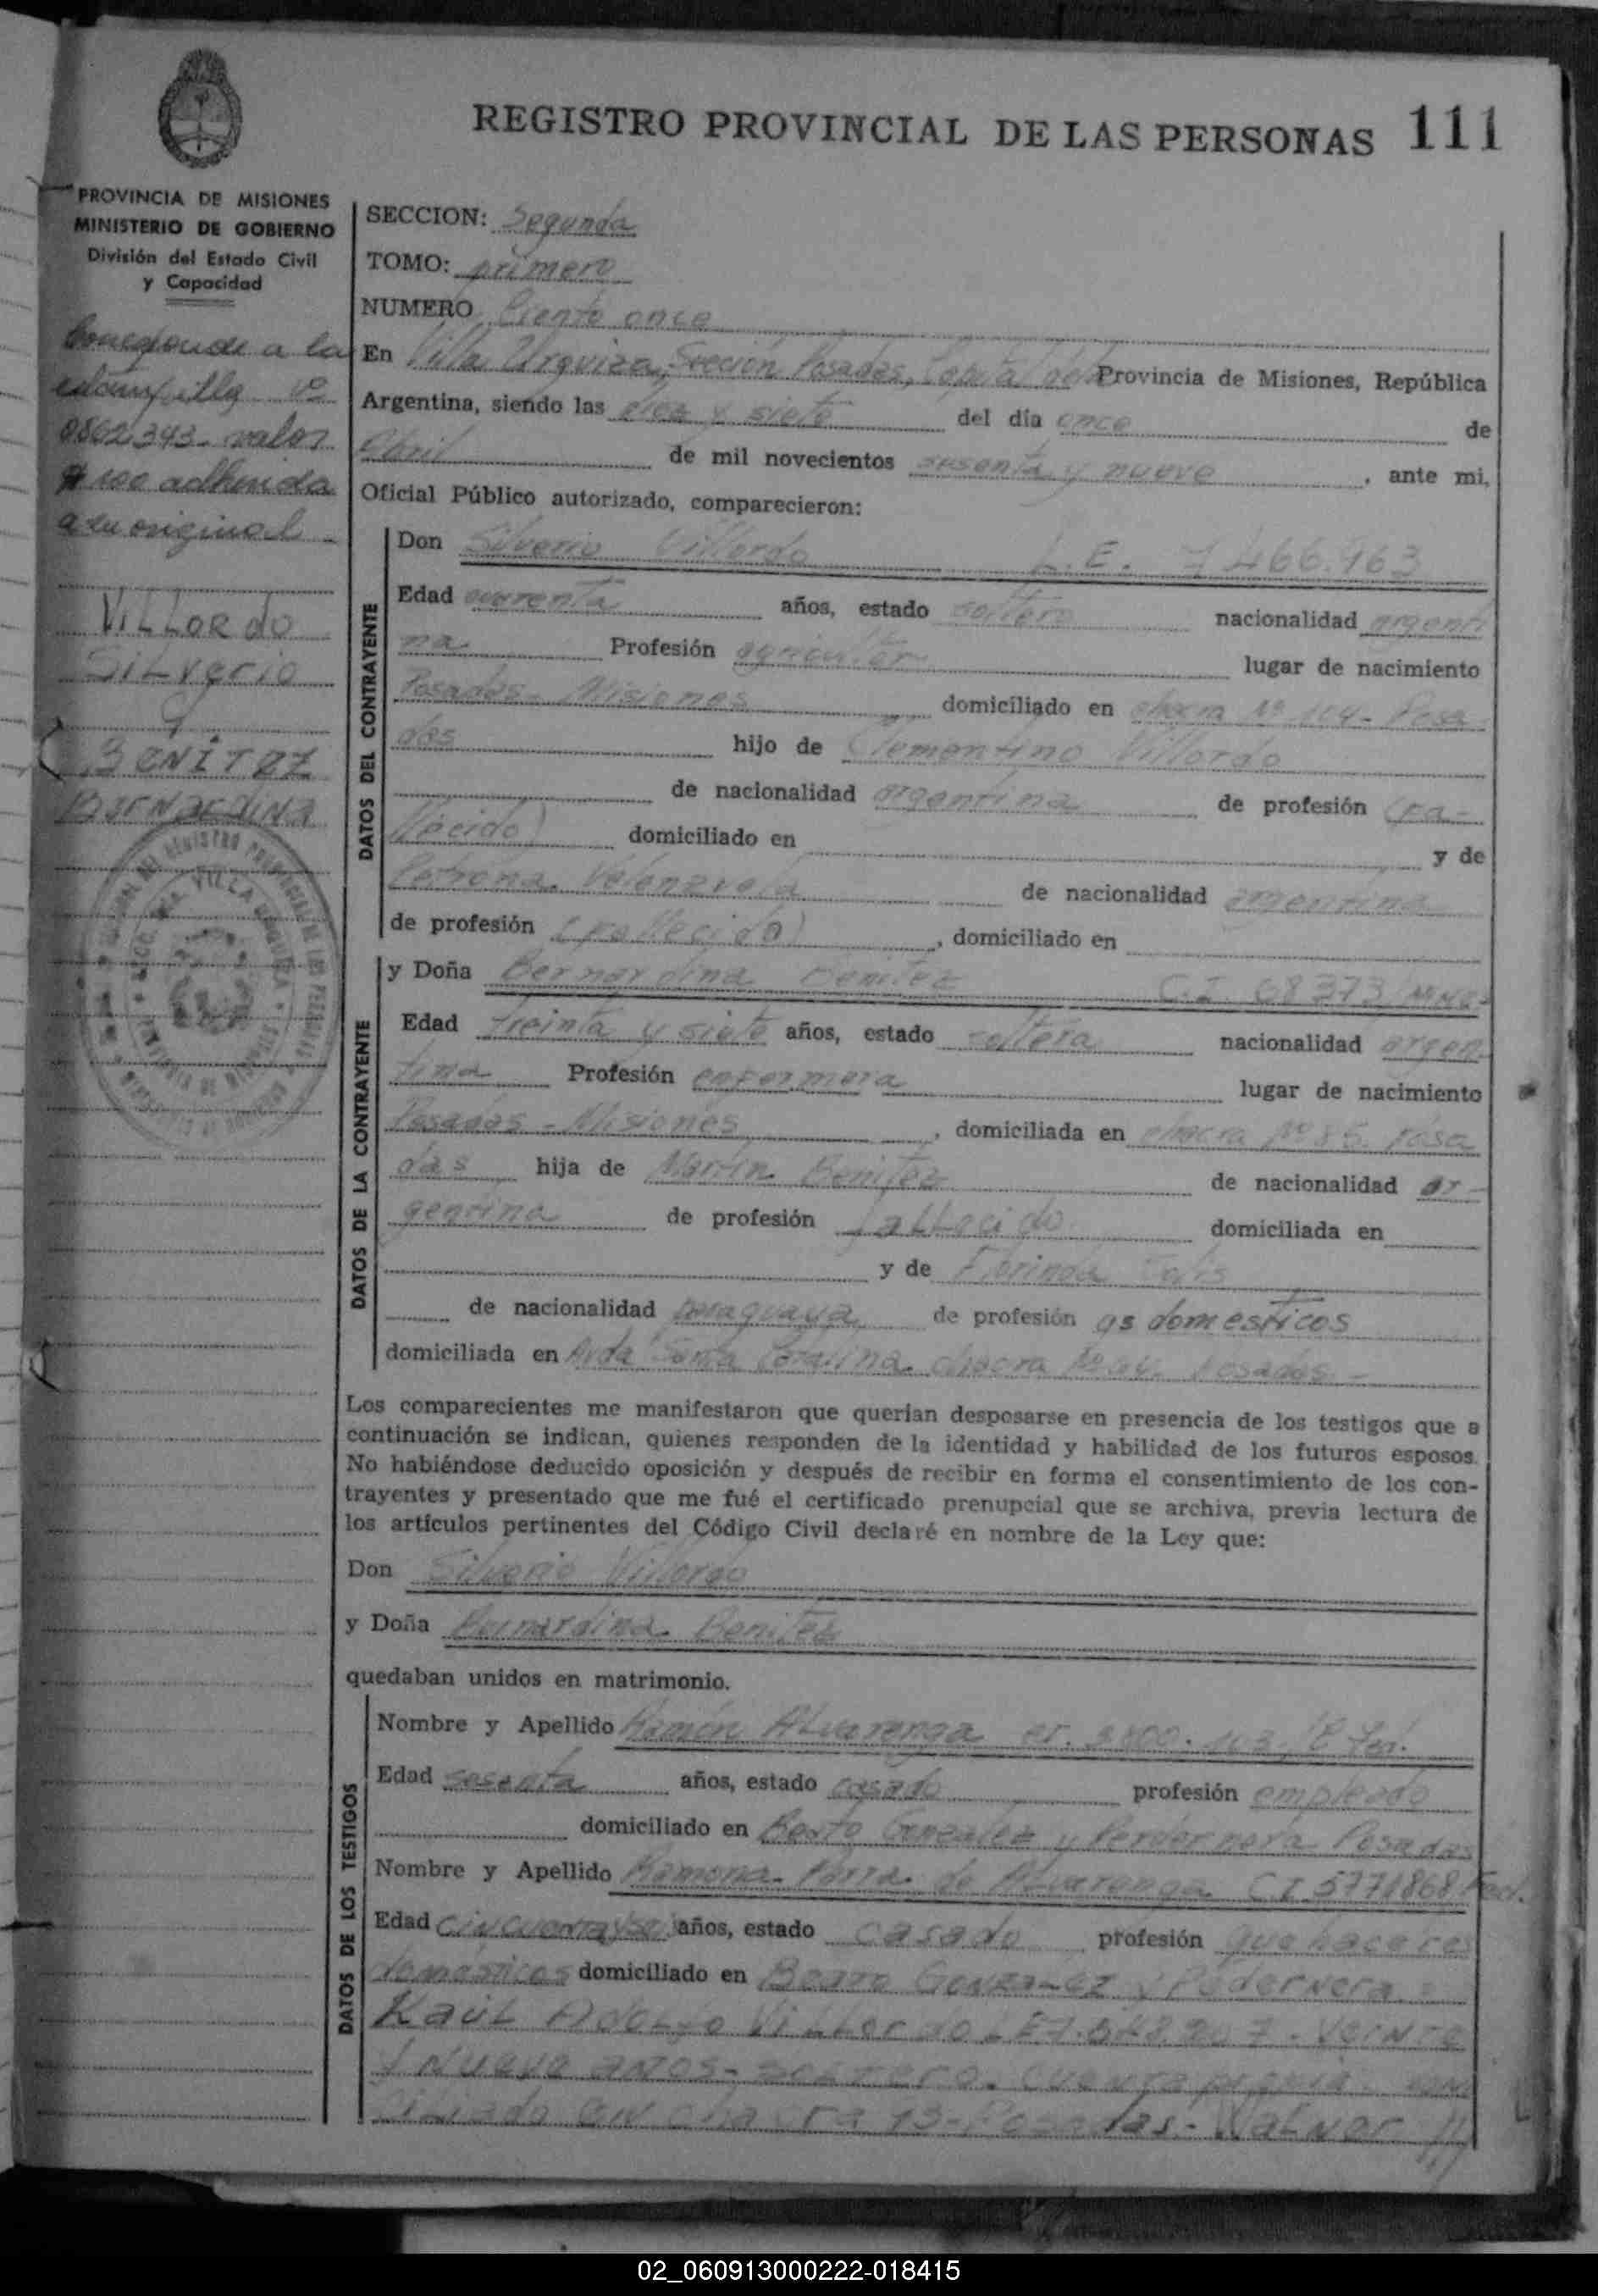 REGISTRO PROVINCIAL DE LAS PERSONAS 111
PROVINCIA DE MISIONES
MINISTERIO DE GOBIERNO
División del Estado Civil
y Capacidad
Corresponde a la
estampilla Nº
0862343 - valor
$ 100 adherida
a su original -
VILLORDO
SILVERIO
y
BENITEZ
BERNARDINA
SECCION: Segunda
TOMO: primero
NUMERO Ciento once
En Villa Urquiza, Sección Posadas, Capital de la Provincia de Misiones, República
Argentina, siendo las diez y siete del día once de
Abril de mil novecientos sesenta y nueve, ante mi,
Oficial Público autorizado, comparecieron:
DATOS DEL CONTRAYENTE
Don Silverio Villordo L.E. 7466.963
Edad cuarenta años, estado soltero nacionalidad argenti
na Profesión agricultor lugar de nacimiento
Posadas - Misiones domiciliado en chacra Nº 104 - Posa
das hijo de Clementino Villordo
de nacionalidad argentina de profesión (fa-
llecido) domiciliado en y de
Petrona Valenzuela de nacionalidad argentina
de profesión (fallecida), domiciliado en
DATOS DE LA CONTRAYENTE
y Doña Bernardina Benitez C.I. 68373
Edad treinta y siete años, estado soltera nacionalidad argen
tina Profesión enfermera lugar de nacimiento
Posadas - Misiones, domiciliada en chacra Nº 85 Posa
das hija de Martin Benitez de nacionalidad ar-
gentina de profesión fallecido domiciliada en
y de Florinda Solis
de nacionalidad paraguaya de profesión qs domesticos
domiciliada en Avda Santa Catalina chacra Posadas -
Los comparecientes me manifestaron que querían desposarse en presencia de los testigos que a
continuación se indican, quienes responden de la identidad y habilidad de los futuros esposos.
No habiéndose deducido oposición y después de recibir en forma el consentimiento de los con-
trayentes y presentado que me fué el certificado prenupcial que se archiva, previa lectura de
los artículos pertinentes del Código Civil declaré en nombre de la Ley que:
Don Silverio Villordo
y Doña Bernardina Benitez
quedaban unidos en matrimonio.
DATOS DE LOS TESTIGOS
Nombre y Apellido Ramón Alvarenga
Edad sesenta años, estado casado profesión empleado
domiciliado en Beato Gonzalez y Pedernera Posadas
Nombre y Apellido Ramona Parra de Alvarenga C I 5771868 Fed.
Edad cincuenta y seis años, estado casado profesión quehaceres
domésticos domiciliado en Beato Gonzalez y Pedernera
Raúl Adolfo Villordo LE 7.548.207 - veinte
y nueve años - soltero. cuenta propia
ciliado en chacra 13 - Posadas -
02_060913000222-018415